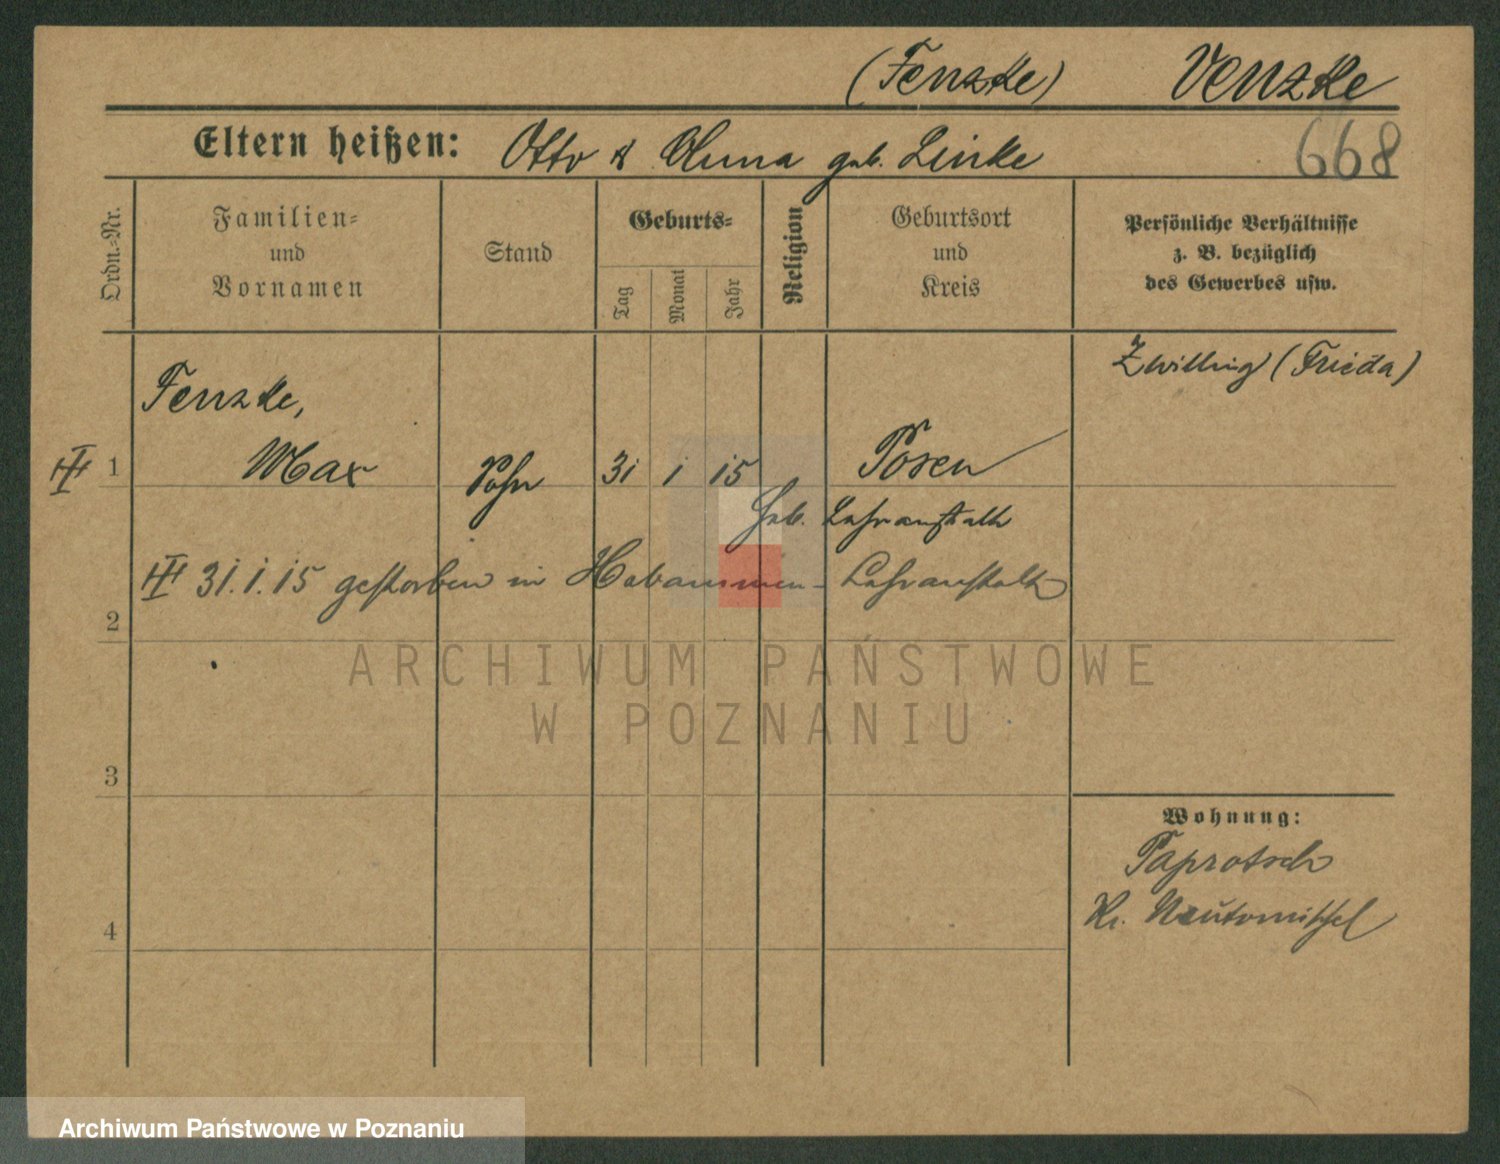 (Fenzke) Venzke
Eltern heißen: Otto & Anna geb. Linke
668
Ordn.-Nr.
Familien-
und
Vornamen
Stand
Geburts-
Tag
Monat
Jahr
Religion
Geburtsort
und
Kreis
Persönliche Verhältnisse
z. B. bezüglich
des Gewerbes usw.
Zwilling (Frieda)
Fenzke,
1 Max Sohn 31 1 15 Posen
Heb. Lehranstalt
31.1.15 gestorben in Hebammen-Lehranstalt
2
ARCHIWUM PAŃSTWOWE
W POZNANIU
3
Wohnung:
Paprotsch
Kr. Neutomischel
4
Archiwum Państwowe w Poznaniu